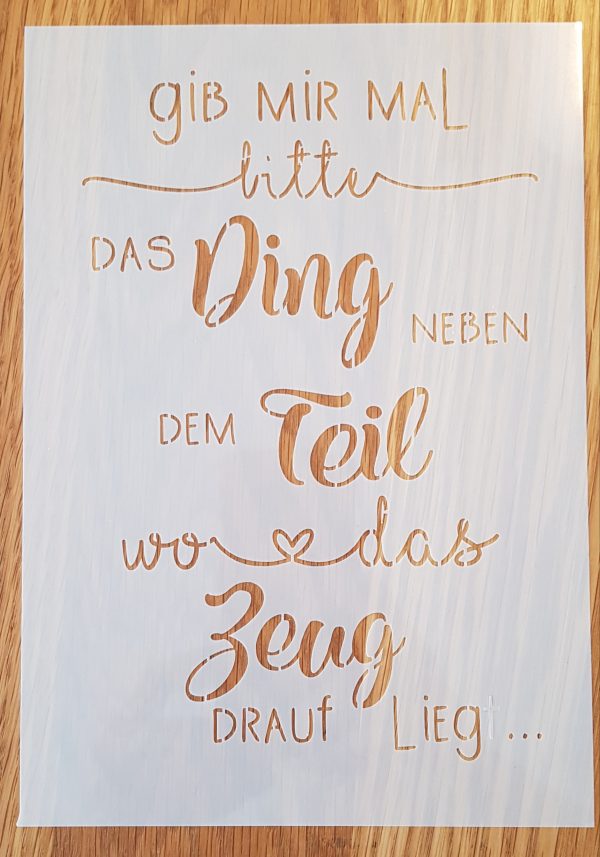 giB MiR MAL
bitte
DAS Ding NEBEN
DEM Teil
wo das
Zeug
DRAUf Liegt...